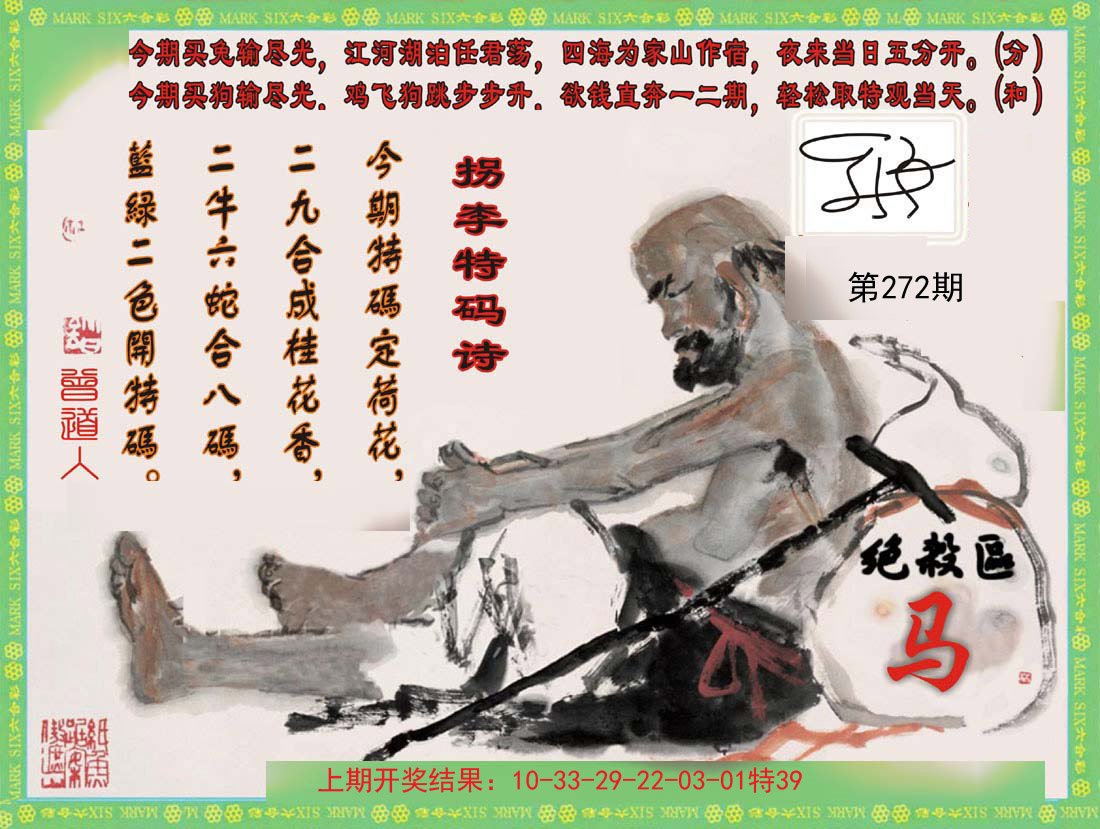 MARK SIX六合彩
今期买兔输尽光，江河湖泊任君荡，四海为家山作宿，夜来当日五分开。(分)
今期买狗输尽光．鸡飞狗跳步步升．欲钱直奔一二期，轻松取特观当天。(和)
拐李特码诗
今期特碼定荷花，
二九合成桂花香，
二牛六蛇合八碼，
藍綠二色開特碼。
曾道人
第272期
绝殺區
马
上期开奖结果：10-33-29-22-03-01特39